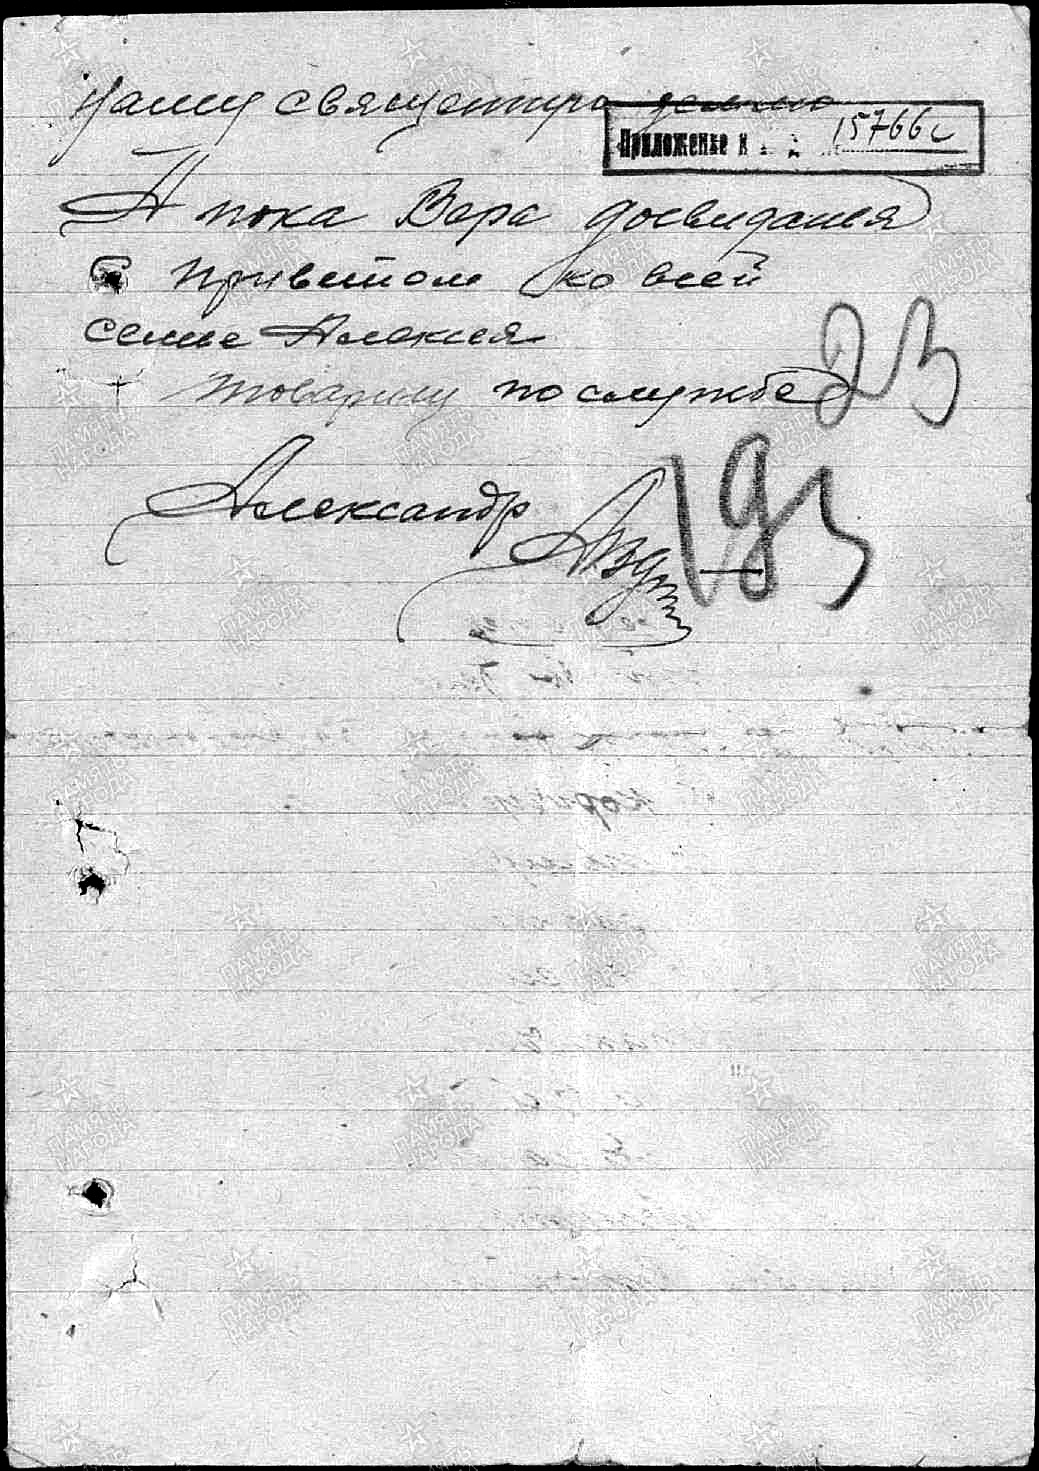 нашу священную землю
Приложение к 15766с
А пока Вера досвиданья
С приветом ко всей
семье Алексея
товарищ по службе
23
Александр
193